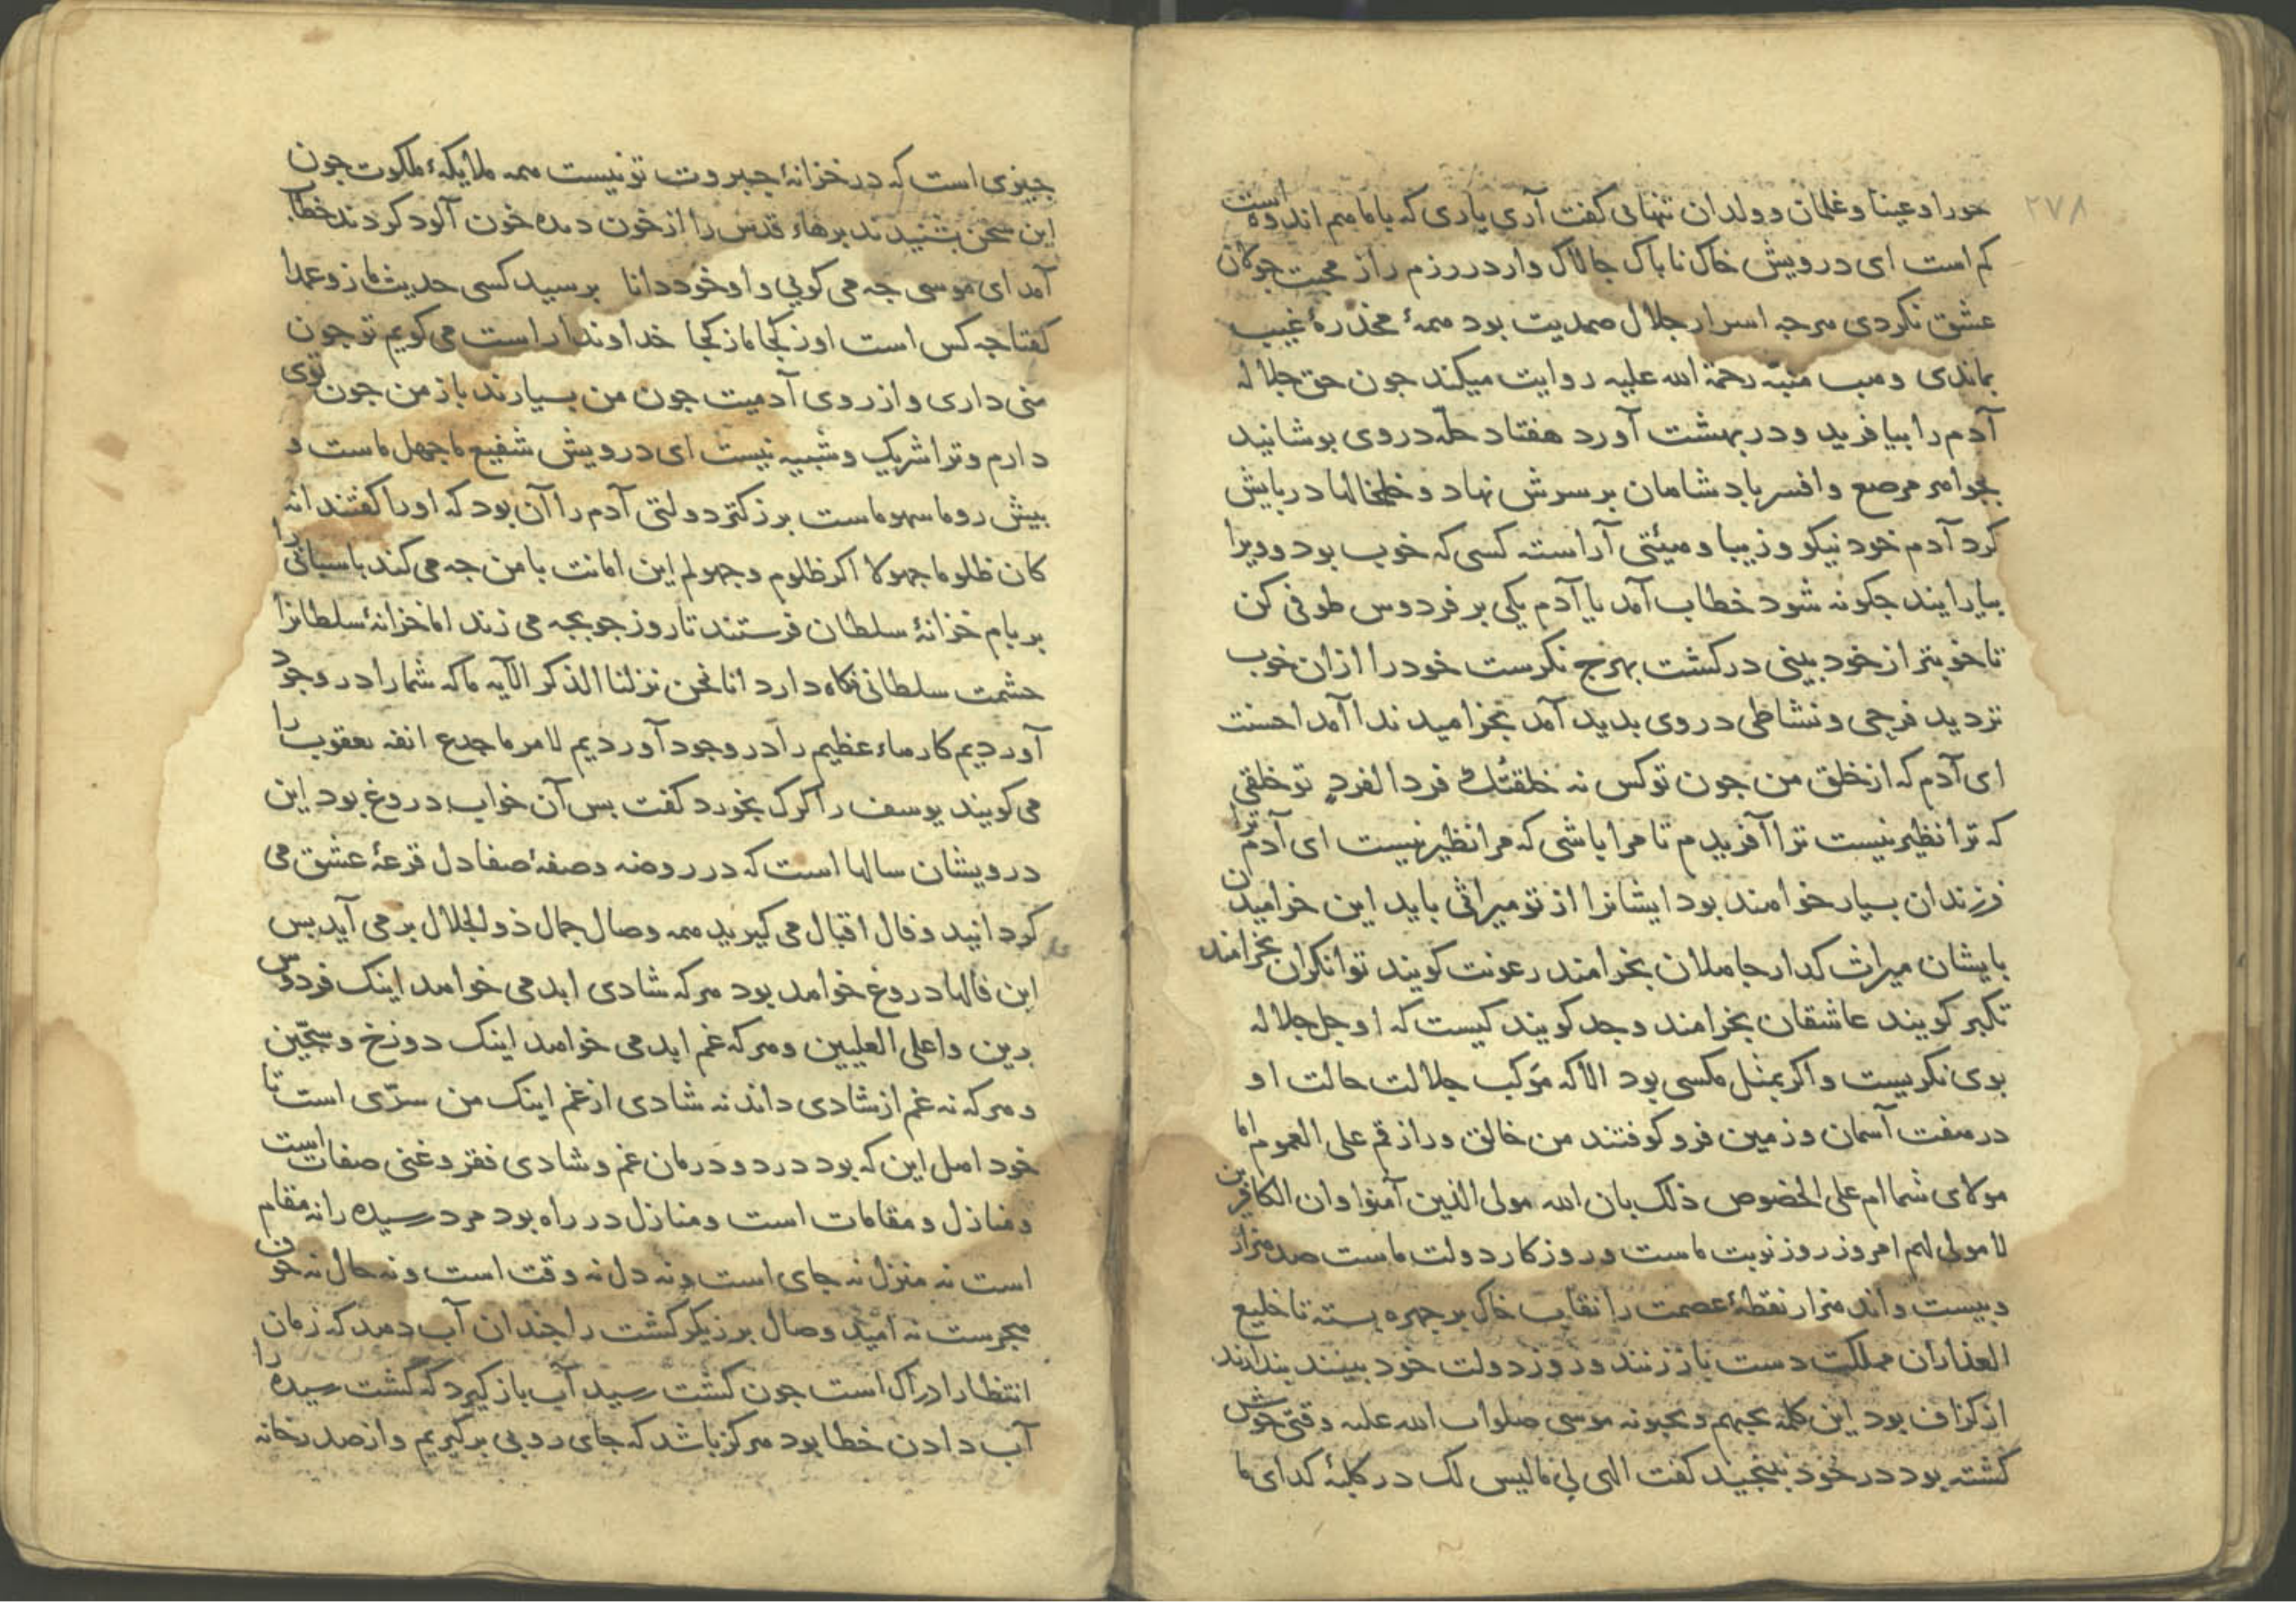 ۲۷۸
حورا و عینا و غلمان و ولدان تنهائی کفت آری یاری که با ما هم اندوه است
کم است ای درویش خاک ناباک جالاک وار در رزم راز محبت جوکان
عشق نکردی هرجه اسرار جلال صمدیت بود همهٔ مخدرهٔ غیب
بماندی وهب منبّه رحمة الله علیه روایت میکند جون حق جلاله
آدم را بیافرید و در بهشت آورد هفتاد حلّه در وی بوشانید
بجواهر مرصع و افسر بادشاهان بر سرش نهاد و خلخالها در بایش
کرد آدم خود نیکو و زیبا و هیئتی آراسته کسی که خوب بود و ویرا
بیارایند جکونه شود خطاب آمد یا آدم یکی بر فردوس طوفی کن
تا خوبتر از خود بینی در کشت بهرج نکرست خود را از ان خوب
تر دید فرحی و نشاطی در وی بدید آمد بخرامید ندا آمد احسنت
ای آدم که از خلق من جون تو کس نه خلقتک فردا لفرد تو خلقی
که ترا نظیر نیست ترا آفریدم تا مرا باشی که مرا نظیر نیست ای آدم ترا
فرزندان بسیار خواهند بود ایشانرا از تو میراثی باید این خرامیدن
بایشان میراث کدار جاهلان بخرامند رعونت کویند توانکران بخرامند
تکبر کویند عاشقان بخرامند وجد کویند کیست که او جل جلاله
بوی نکریست و اکر بمثل مکسی بود الا که مؤکب جلالت حالت او
در هفت آسمان و زمین فرو کوفتند من خالق ورازقم علی العموم اما
مولای شما ام علی الخصوص ذلک بان الله مولی الذین آمنوا وان الکافرین
لا مولی لهم امروز روز نوبت ماست و روز کار دولت ماست صد هزار
و بیست و اند هزار نقطهٔ عصمت را نقاب خاک بر جهره بسته تا خلیع
العذاران مملکت دست باز زنند و روز دولت خود ببینند بندارند
از کزاف بود این کلمه یحبهم و یحبونه موسی صلوات الله علیه وقتی خوش
کشته بود در خود نکنجید کفت الهی لی مالیس لک در کلبهٔ کدای ما
جیزی است که در خزانهٔ جبروت تو نیست همه ملایکهٔ ملکوت جون
این سخن بشنیدند برهاء قدس را از خون دیده خون آلود کردند خطاب
آمد ای موسی جه می کویی و او خود دانا برسید کسی حدیث ماز و عمدا
کفتا جه کس است او ز کجا ماز کجا خداوندا راست می کویم تو جون
منی داری و از روی آدمیت جون من بسیارند باز من جون توی
دارم و ترا شریک و شبیه نیست ای درویش شفیع ما جهل ماست و
بیش رو ما سهو ماست بزرکتر دولتی آدم را آن بود که او را کفتند انه
کان ظلوما جهولا اکر ظلوم و جهولم این امانت با من جه می کند باسبانی را
بر بام خزانهٔ سلطان فرستند تا روز جوبجه می زند اما خزانهٔ سلطانرا
حشمت سلطانی نکاه دارد انا نحن نزلنا الذکر الآیه ما که شما را در وجود
آوردیم کارهاء عظیم را در وجود آوردیم لامر ما جدع انفه یعقوب را
می کویند یوسف را کرک بخورد کفت بس آن خواب دروغ بود این
درویشان سالها است که در روضه و صفهٔ صفا دل قرعهٔ عشق می
کردانید و فال اقبال می کیرید همه وصال جمال ذو الجلال بر می آید بس
این فالها دروغ خواهد بود هر که شادی ابد می خواهد اینک فردوس
برین و اعلی العلیین و هر که غم ابد می خواهد اینک دوزخ و سجّین
و هر که نه غم از شادی داند نه شادی از غم اینک من سرّی است تا
خود اهل این که بود درد و درمان غم و شادی فقر و غنی صفات است
و منازل و مقامات است و منازل در راه بود مرد رسیده را نه مقام
است نه منزل نه جای است و نه دل نه وقت است و نه حال نه خوف
هجرست نه امید وصال برزیکر کشت را جندان آب دهد که زمان
انتظار ادراک است جون کشت رسید آب باز کیرد که کشت رسیده را
آب دادن خطا بود هرکز باشد که جای روبی برکیریم و از صدر خانه